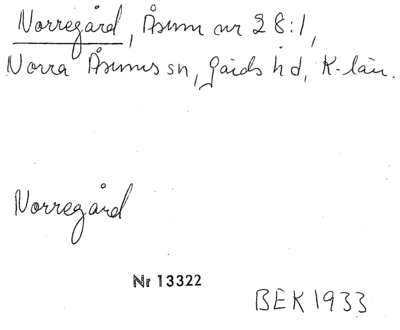 Norregård, Åsum nr 28:1,
Norra Åsums sn, Gärds hd, K-län.
Norregård
Nr 13322
BEK 1933